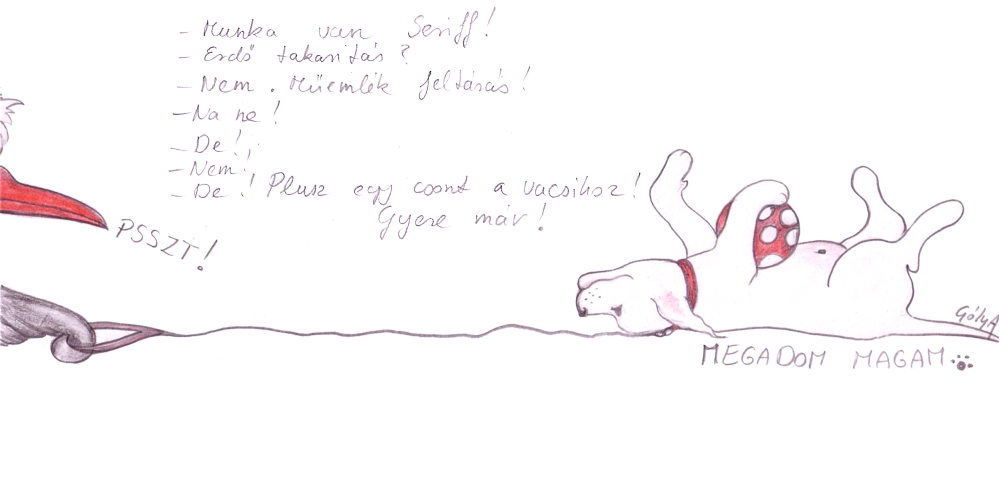 - Munka van Seriff!
- Erdő takarítás?
- Nem. Műemlék feltárás!
- Na ne!
- De!
- Nem!
- De! Plusz egy csont a vacsihoz!
Gyere már!
PSSZT!
GólyA
MEGADOM MAGAM